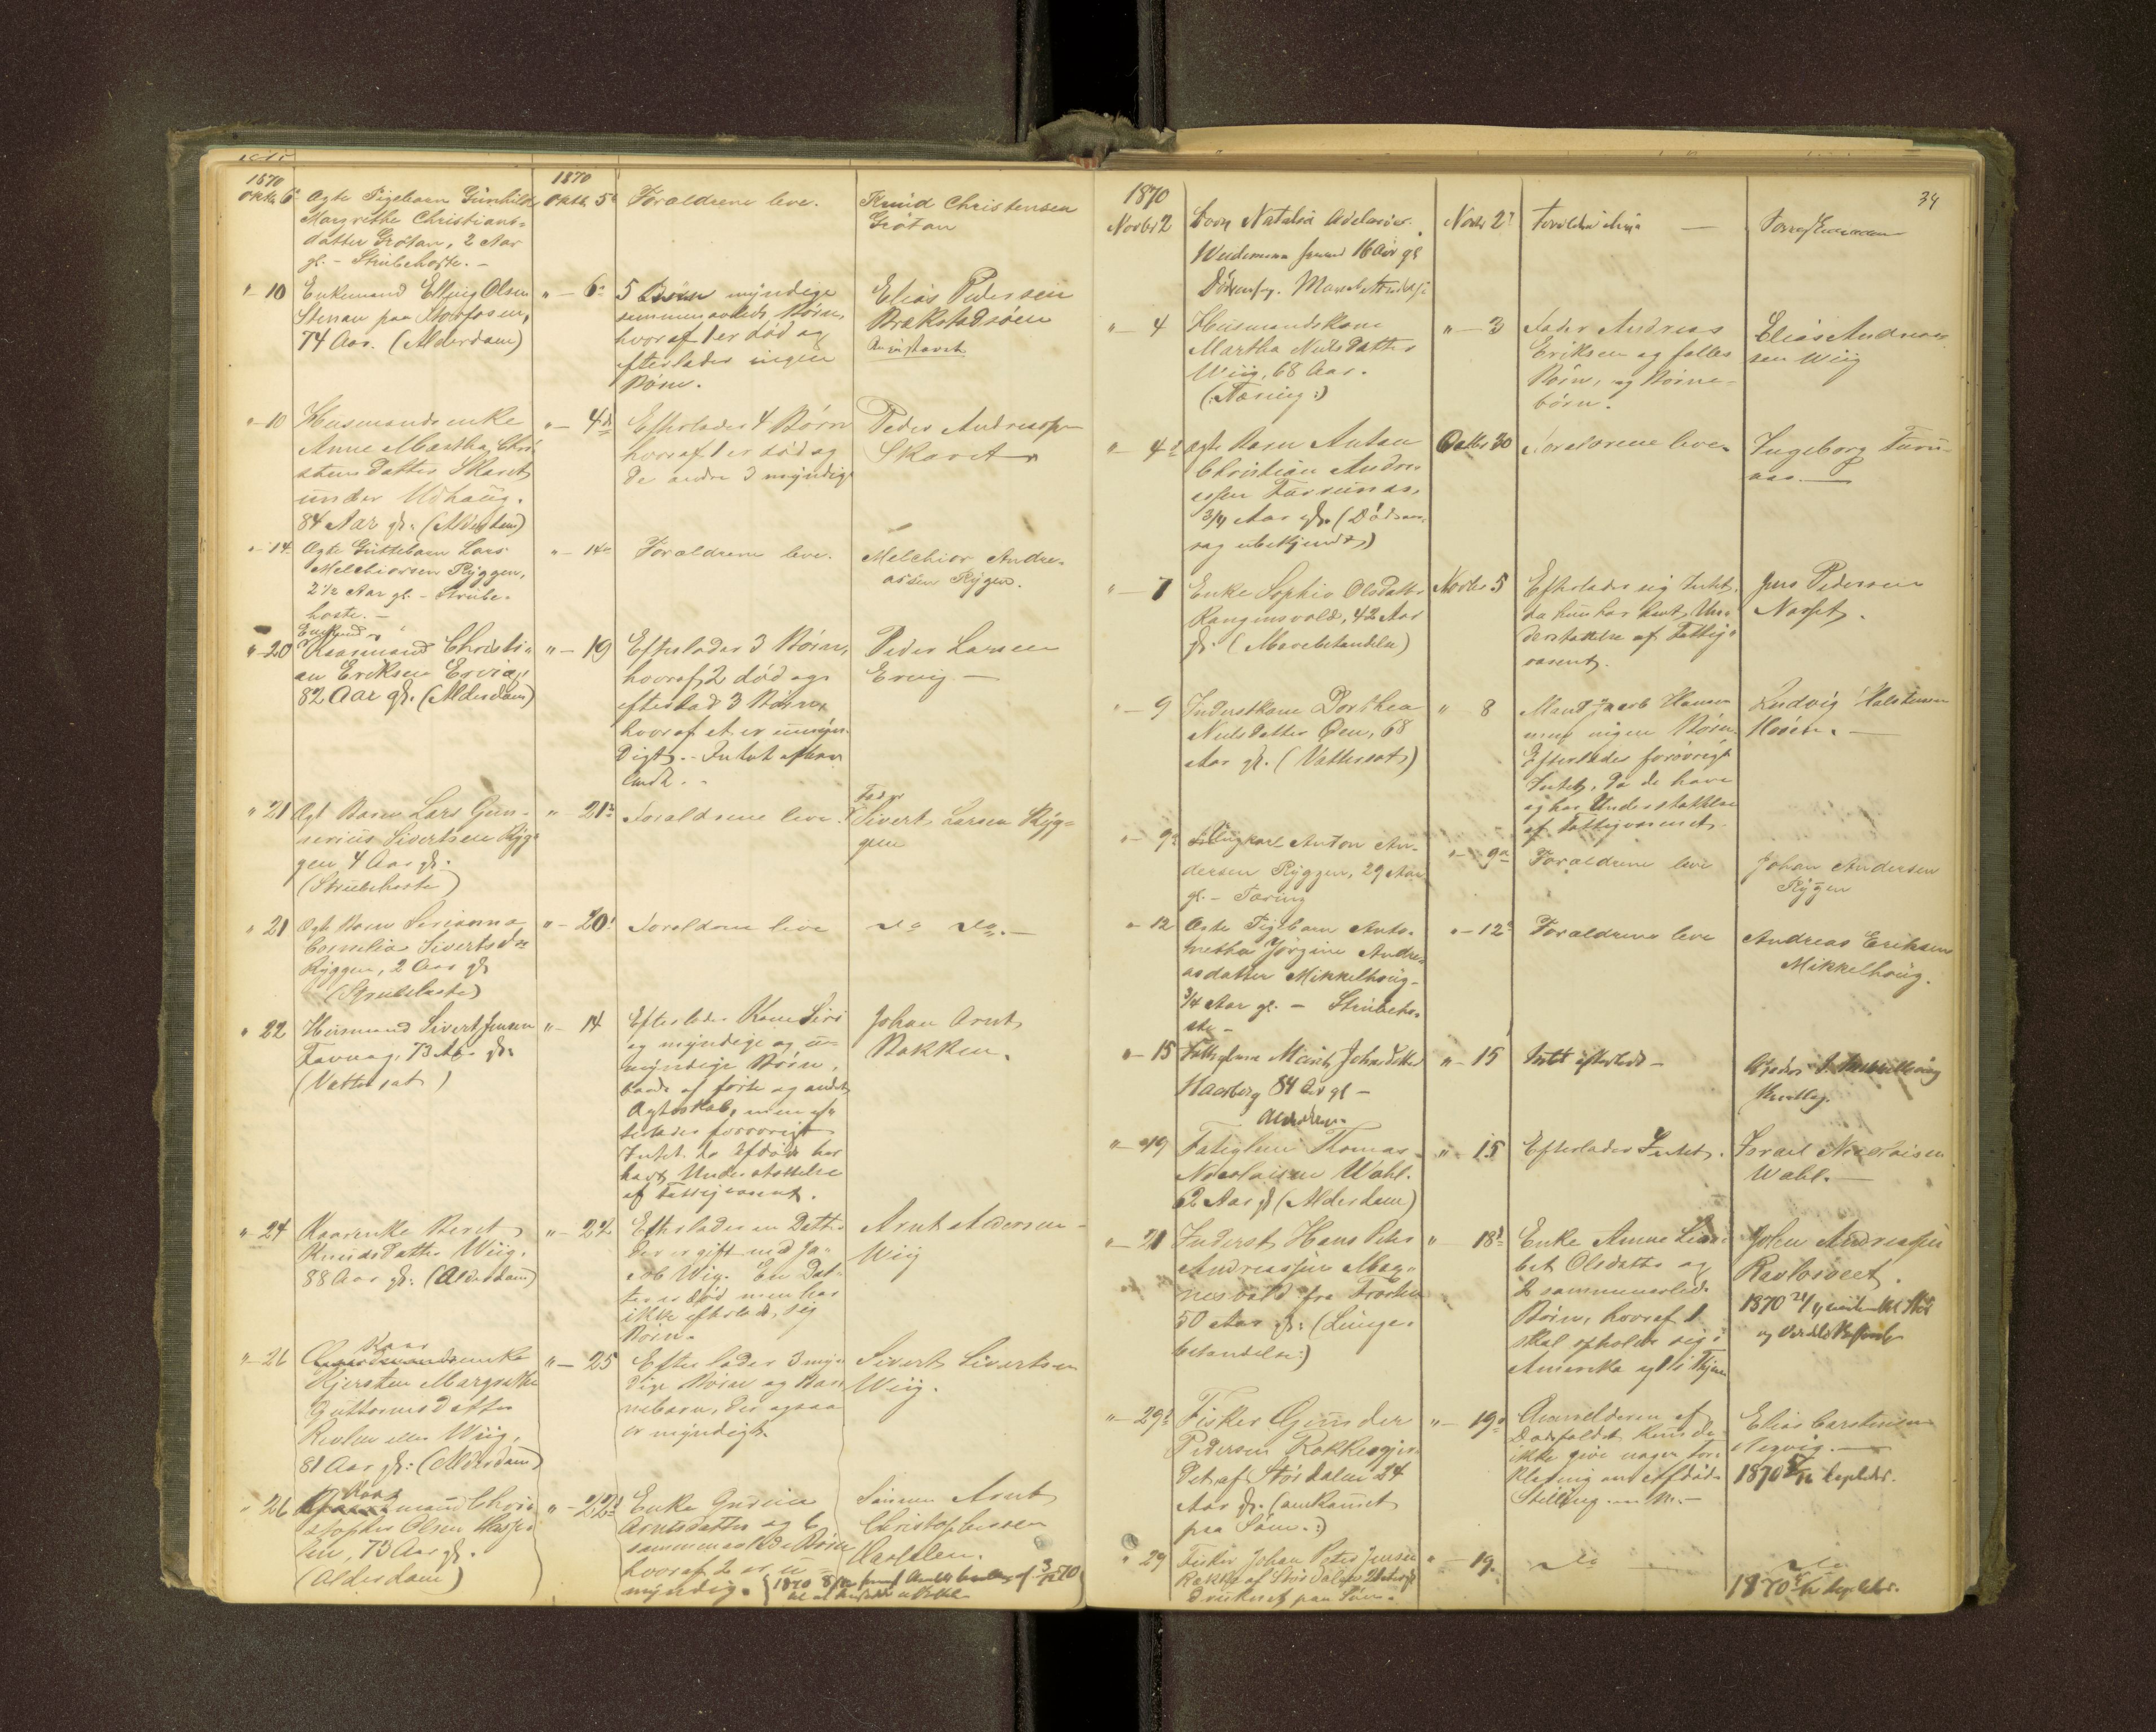 1870
Oktb. 6
Ægte Pigebarn Gunhild
Margrethe Christians-
datter Grótan, 2 Aar
gl. - Strubehoste. -
1870
Oktb. 5
Forældrene leve.
Knud Christensen
Grótan
" 10
Enkemand Ellfing Olsen
Stenan paa Storfosen,
74 Aar. (Alderdom)
" - 6
5 Børn myndige
sammenavlede Børn,
hvoraf 1 er død og
efterlader ingen
Børn.
Elias Pedersen
" - 10
Husmandsenke
Anne Martha Chri-
stensdatter Skaret
under Udhaug.
84 Aar gl. (Alderdom)
" - 4
Efterlader 4 Børn
hvoraf 1 er død og
de andre 3 myndige
Peder Andreassen
Skaret
" - 14
Ægte Guttebarn Lars
Melchiorsen Ryggen,
2 1/2 Aar gl. - Strube-
hoste. -
" - 14
Forældrene leve.
Melchior Andre-
assen Rygen.
" - 20
Enkemd.
Kaarmand Christi-
an Eriksen Ervig,
82 Aar gl. (Alderdom)
" - 19
Efterlader 3 Børn,
hvoraf 2 død og
efterlod 3 Børn,
hvoraf et er umyn-
digt. - Intet
Peder Larsen
Ervig -
" 21
Ægt Barn Lars Gun-
nerius Sivertsen Ryg-
gen 4 Aar gl.
(Strubehoste)
" - 21
Forældrene leve.
Fader
Sivert Larsen Ryg-
gen
" 21
Ægt Barn Serianna
Cornelia Sivertsdr
Ryggen, 2 Aar gl.
(Strubehoste)
" - 20
Forældrene leve
do do. -
" 22
Husmand Sivert Jensen
73 Aar gl.
(Vattersot)
" - 14
Efterlader Kone Siri
og myndige og u-
myndige Børn,
baade af første og andet
Ægteskab, men ef-
terlader forøvrigt
Intet da Afdøde har
havt Understøttelse
af Fattigvæsenet.
Johan Arnt
Bakken.
" - 24
Kaarenke Beret
Knudsdatter Wiig.
88 Aar gl. (Alderdom)
" - 22
Efterlader en Datter
der er gift med Ja-
cob Wig. En Dat-
ter er død men har
ikke efterladt sig
Børn.
Arnt
Wiig
" - 26
Kaar
enke
Kjersten Margrethe
Guttormsdatter
Revlen eller Wiig,
81 Aar gl. (Alderdom)
" - 25
Efterlader 3 myn-
dige Børn og Bar-
nebarn, der ogsaa
er myndigt.
Sivert Sivertsen
Wiig.
" 26
Kaar
mand Chri-
stopher Olsen Hasse-
len, 73 Aar gl.
(Alderdom)
" - 22
Enke Gurine
Arntsdatter og 6
sammenavlede Børn
hvoraf 2 er u-
myndig.
Sønnen Arnt
Christophersen
Hasselen.
34
1870
Novbr 2
Natalia
16 Aar gl
Novbr 2
-
" - 4
Husmandskone
Martha Nilsdatter
Wiig, 68 Aar.
(Tæring)
" - 3
Fader Andreas
Eriksen og fælles
Børn, og Børne-
børn.
Elias Andreas-
sen Wiig
" - 4
Ægte Barn Anton
Christian Andre-
assen Furunas,
3/4 Aar gl. (Dødsaar-
sag ubekjendt)
Oktbr 30
Forældrene leve.
Ingeborg Furu-
aas. -
" - 7
Enke Sophie Olsdatter
Rangensvold, 42 Aar
gl. (Mavebetændelse)
Novbr 5
Efterlader sig Intet,
da hun har havt Un-
derstøttelse af Fattig-
væsenet.
Jens Pedersen
Nasset.
" - 9
Inderstkone Dorthea
Nilsdatter Øen, 68
Aar gl. (Vattersot)
" 8
Mand Jacob Hansen
men ingen Børn.
Efterlades forøvrigt
Intet, da de have
og har Understøttelse
af Fattigvæsenet.
Ludvig Halstensen
" - 9
Ungkarl Anton An-
dersen Ryggen, 29 Aar
gl. - Tæring
" - 9
Forældrene leve
Johan Andersen
Rygen
" - 12
Ægte Pigebarn Anto-
netha Jørgine Andre-
asdatter Mikkelhaug-
3/4 Aar gl. - Strubeho-
ste -
" - 12
Forældrene leve
Andreas Eriksen
Mikkelhaug.
" - 15
Marit Johnsdatter
Haarberg 84 Aar gl -
Alderdom
" - 15
Intet efterladt -
" - 19
Fatiglem Thomas
Nicolaisen Wahl.
62 Aar gl (Alderdom)
" - 15
Efterlader Intet.
Israel Nicolaisen
Wahl. -
" - 21
Inderst Hans Peter
Andreassen Mag-
nesvold fra Frosten
50 Aar gl. (Lunge-
betændelse)
" - 18
Enke Anne Lisa-
bet Olsdatter og
2 sammenavlede
Børn, hvoraf 1
skal opholde sig i
Amerika og
John Andreassen
1870
" - 29
Fisker Gunder
Pedersen
af Størdalen 24
Aar gl. (omkommet
paa Søen.)
" - 19
Anmelderen af
Dødsfaldet kunde
ikke give nogen For-
klaring om afdødes
Stilling
Elias Carstensen
1870
" 29
Fisker Johan Peter Jensen
af Størdalen
Druknet paa Søen.
" - 19.
do -
do
1870